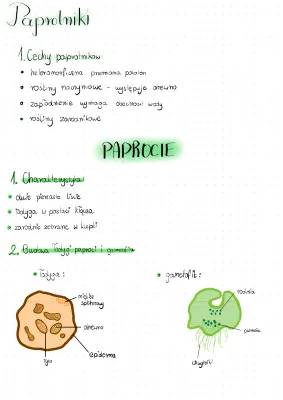 Paprotniki
1. Cechy paprotników
heteromorficzna przemiana pokoleń
rośliny naczyniowe - występuje drewno
zapłodnienie wymaga obecności wody
rośliny zarodnikowe
PAPROCIE
1. Charakterystyka
duże pierzaste liście
łodyga w postaci kłącza
zarodnie zebrane w kupki
2. Budowa łodygi paproci i gametofitu
łodyga:
gametofit:
miękisz
drewno
epiderma
łyko
rodnia
plemnia
chwytniki